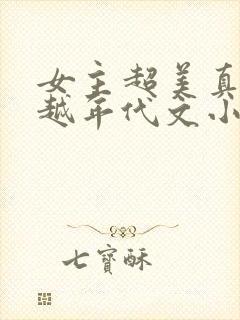 女主超美真
越年代文小
七寶酥